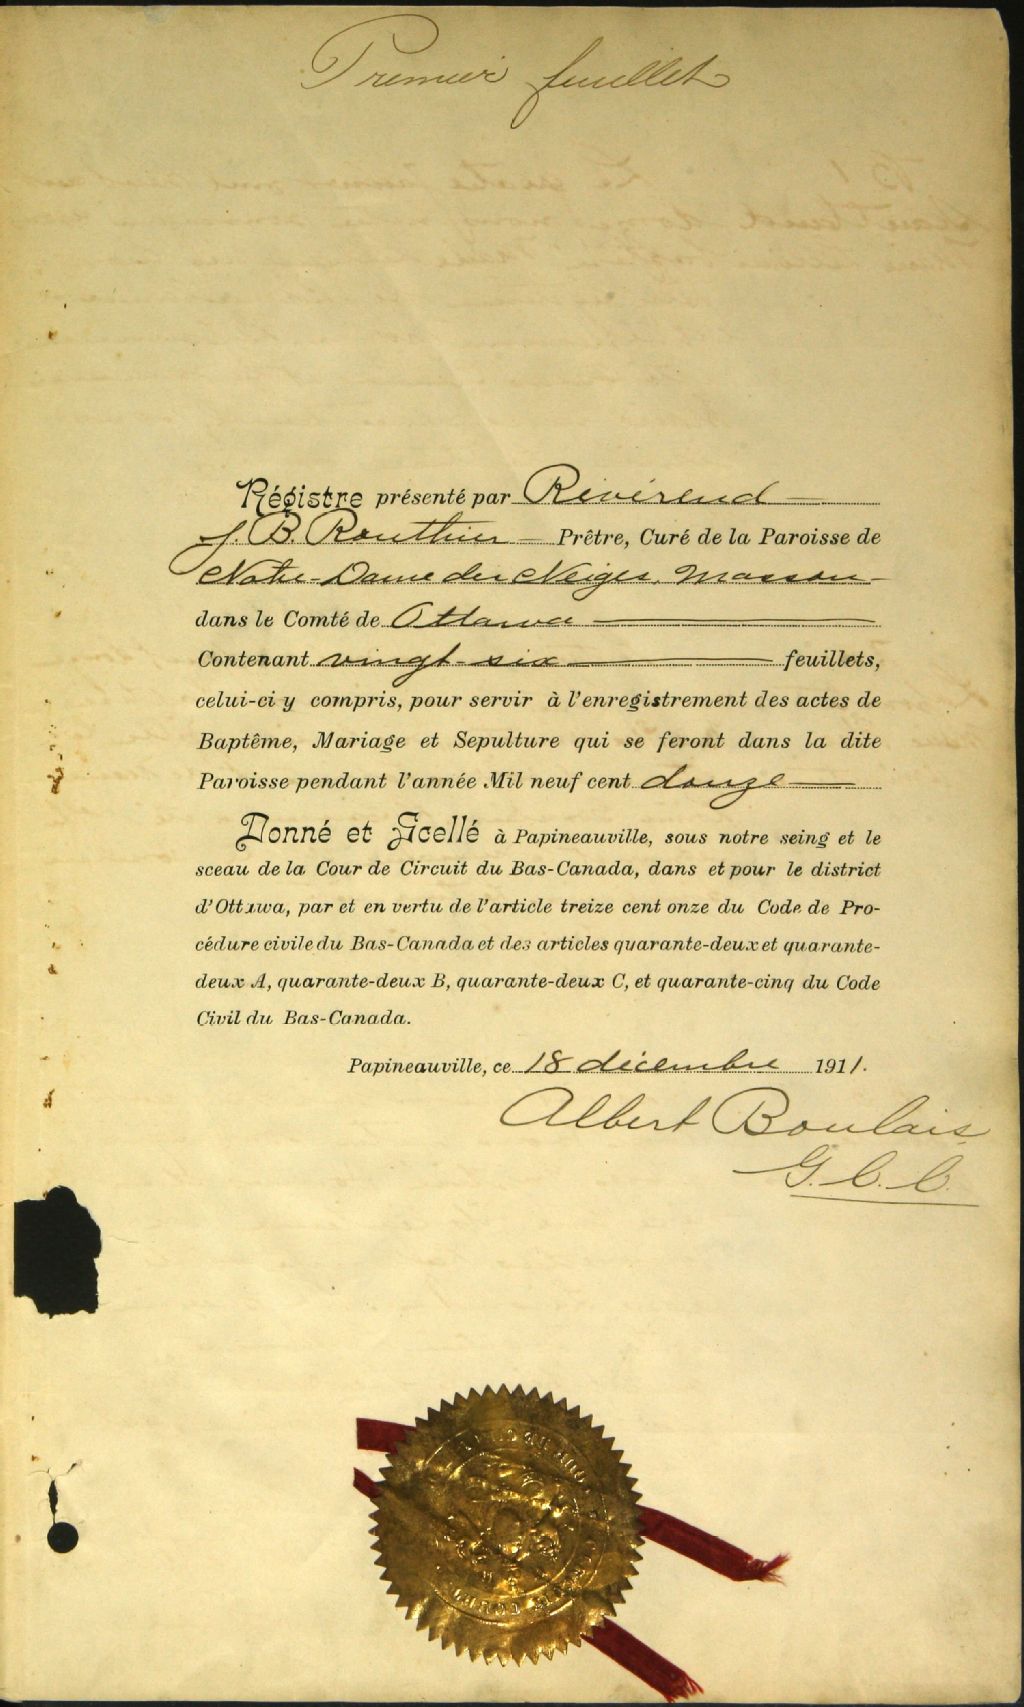 Premier feuillet
Régistre présenté par Révérend
J. B. Routhier Prêtre, Curé de la Paroisse de
Notre-Dame des Neiges, Masson
dans le Comté de Ottawa
Contenant vingt-six feuillets,
celui-ci y compris, pour servir à l'enregistrement des actes de
Baptême, Mariage et Sepulture qui se feront dans la dite
Paroisse pendant l'année Mil neuf cent douze
Donné et Scellé à Papineauville, sous notre seing et le
sceau de la Cour de Circuit du Bas-Canada, dans et pour le district
d'Ottawa, par et en vertu de l'article treize cent onze du Code de Pro-
cédure civile du Bas-Canada et des articles quarante-deux et quarante-
deux A, quarante-deux B, quarante-deux C, et quarante-cinq du Code
Civil du Bas-Canada.
Papineauville, ce 18 décembre 1911.
Albert Boulais
G. C. C.